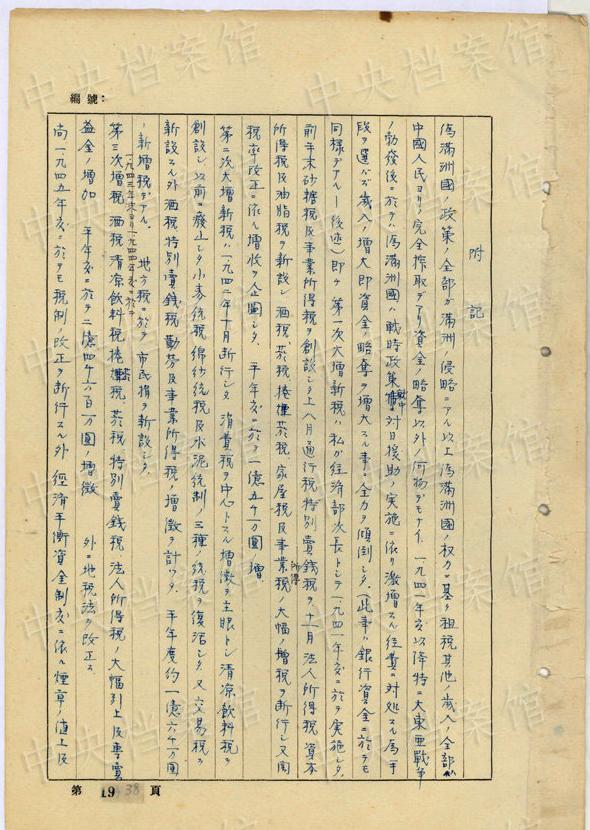 編號：
附記
偽満洲國ノ政策ノ全部ガ満洲ノ侵略ニアル以上偽満洲國ノ权力ニ基ク租税其他ノ歳入ノ全部ガ
中國人民ヨリノ完全搾取デアリ資金ノ略奪以外ノ何物デモナイ.一九四一年度以降特ニ大東亜戰争
ノ勃發後ニ於テハ偽満洲國ハ戰時政策就中対日援助ノ実施ニ依リ激增スル経費ニ対処スル爲ノ手
段ヲ選バズ歳入ノ增大即資金ノ略奪ヲ增大スル事ニ全力ヲ傾倒シタ.(此事ハ銀行資金ニ於テモ
同様デアル—後述)即チ 第一次大増新税ハ私ガ経済部次長トシテ一九四一年度ニ於テ実施シタ.
前年末砂糖税及事業所得税ヲ創設シタ上八月通行税特別賣錢税ヲ十一月法人所得税資本
所得税及油脂税ヲ新設シ 酒税、菸税捲菸税家屋税及事業所得税ノ大幅ノ増税ヲ断行シ又関
税率改正ニ依ル増收ヲ企圖シタ. 平年度ニ於テ一億五千万圓増.
第二次大增新税ハ一九四二年十月断行シタ 消費税ヲ中心トスル増徴ヲ主眼トシ清凉飲料税ヲ
創設シ以前ニ廢止シタ小麥統税綿紗統税及水泥統制ノ三種ノ統税ヲ復活シタ.又交易税ヲ
新設スル外酒税特別賣錢税勤労及事業所得税ノ增徴ヲ計ツタ. 平年度約一億六千万圓
ノ新增税デアル. 地方税ニ於テ市民捐ヲ新設シタ.
一九四三年末ヨリ一九四四年度ニ於テ
第三次増税 酒税 清凉飲料税 捲菸税、菸税 特別賣錢税 法人所得税ノ大幅引上及専賣
益金ノ増加 平年度ニ於テ二億四千六百万圓ノ増徴 外ニ地税法ヲ改正ス
尚一九四五年度ニ於テモ税制ノ改正ヲ断行スル外 經済平衡資金制度ニ依ル煙草ノ値上及
第 19 38 頁